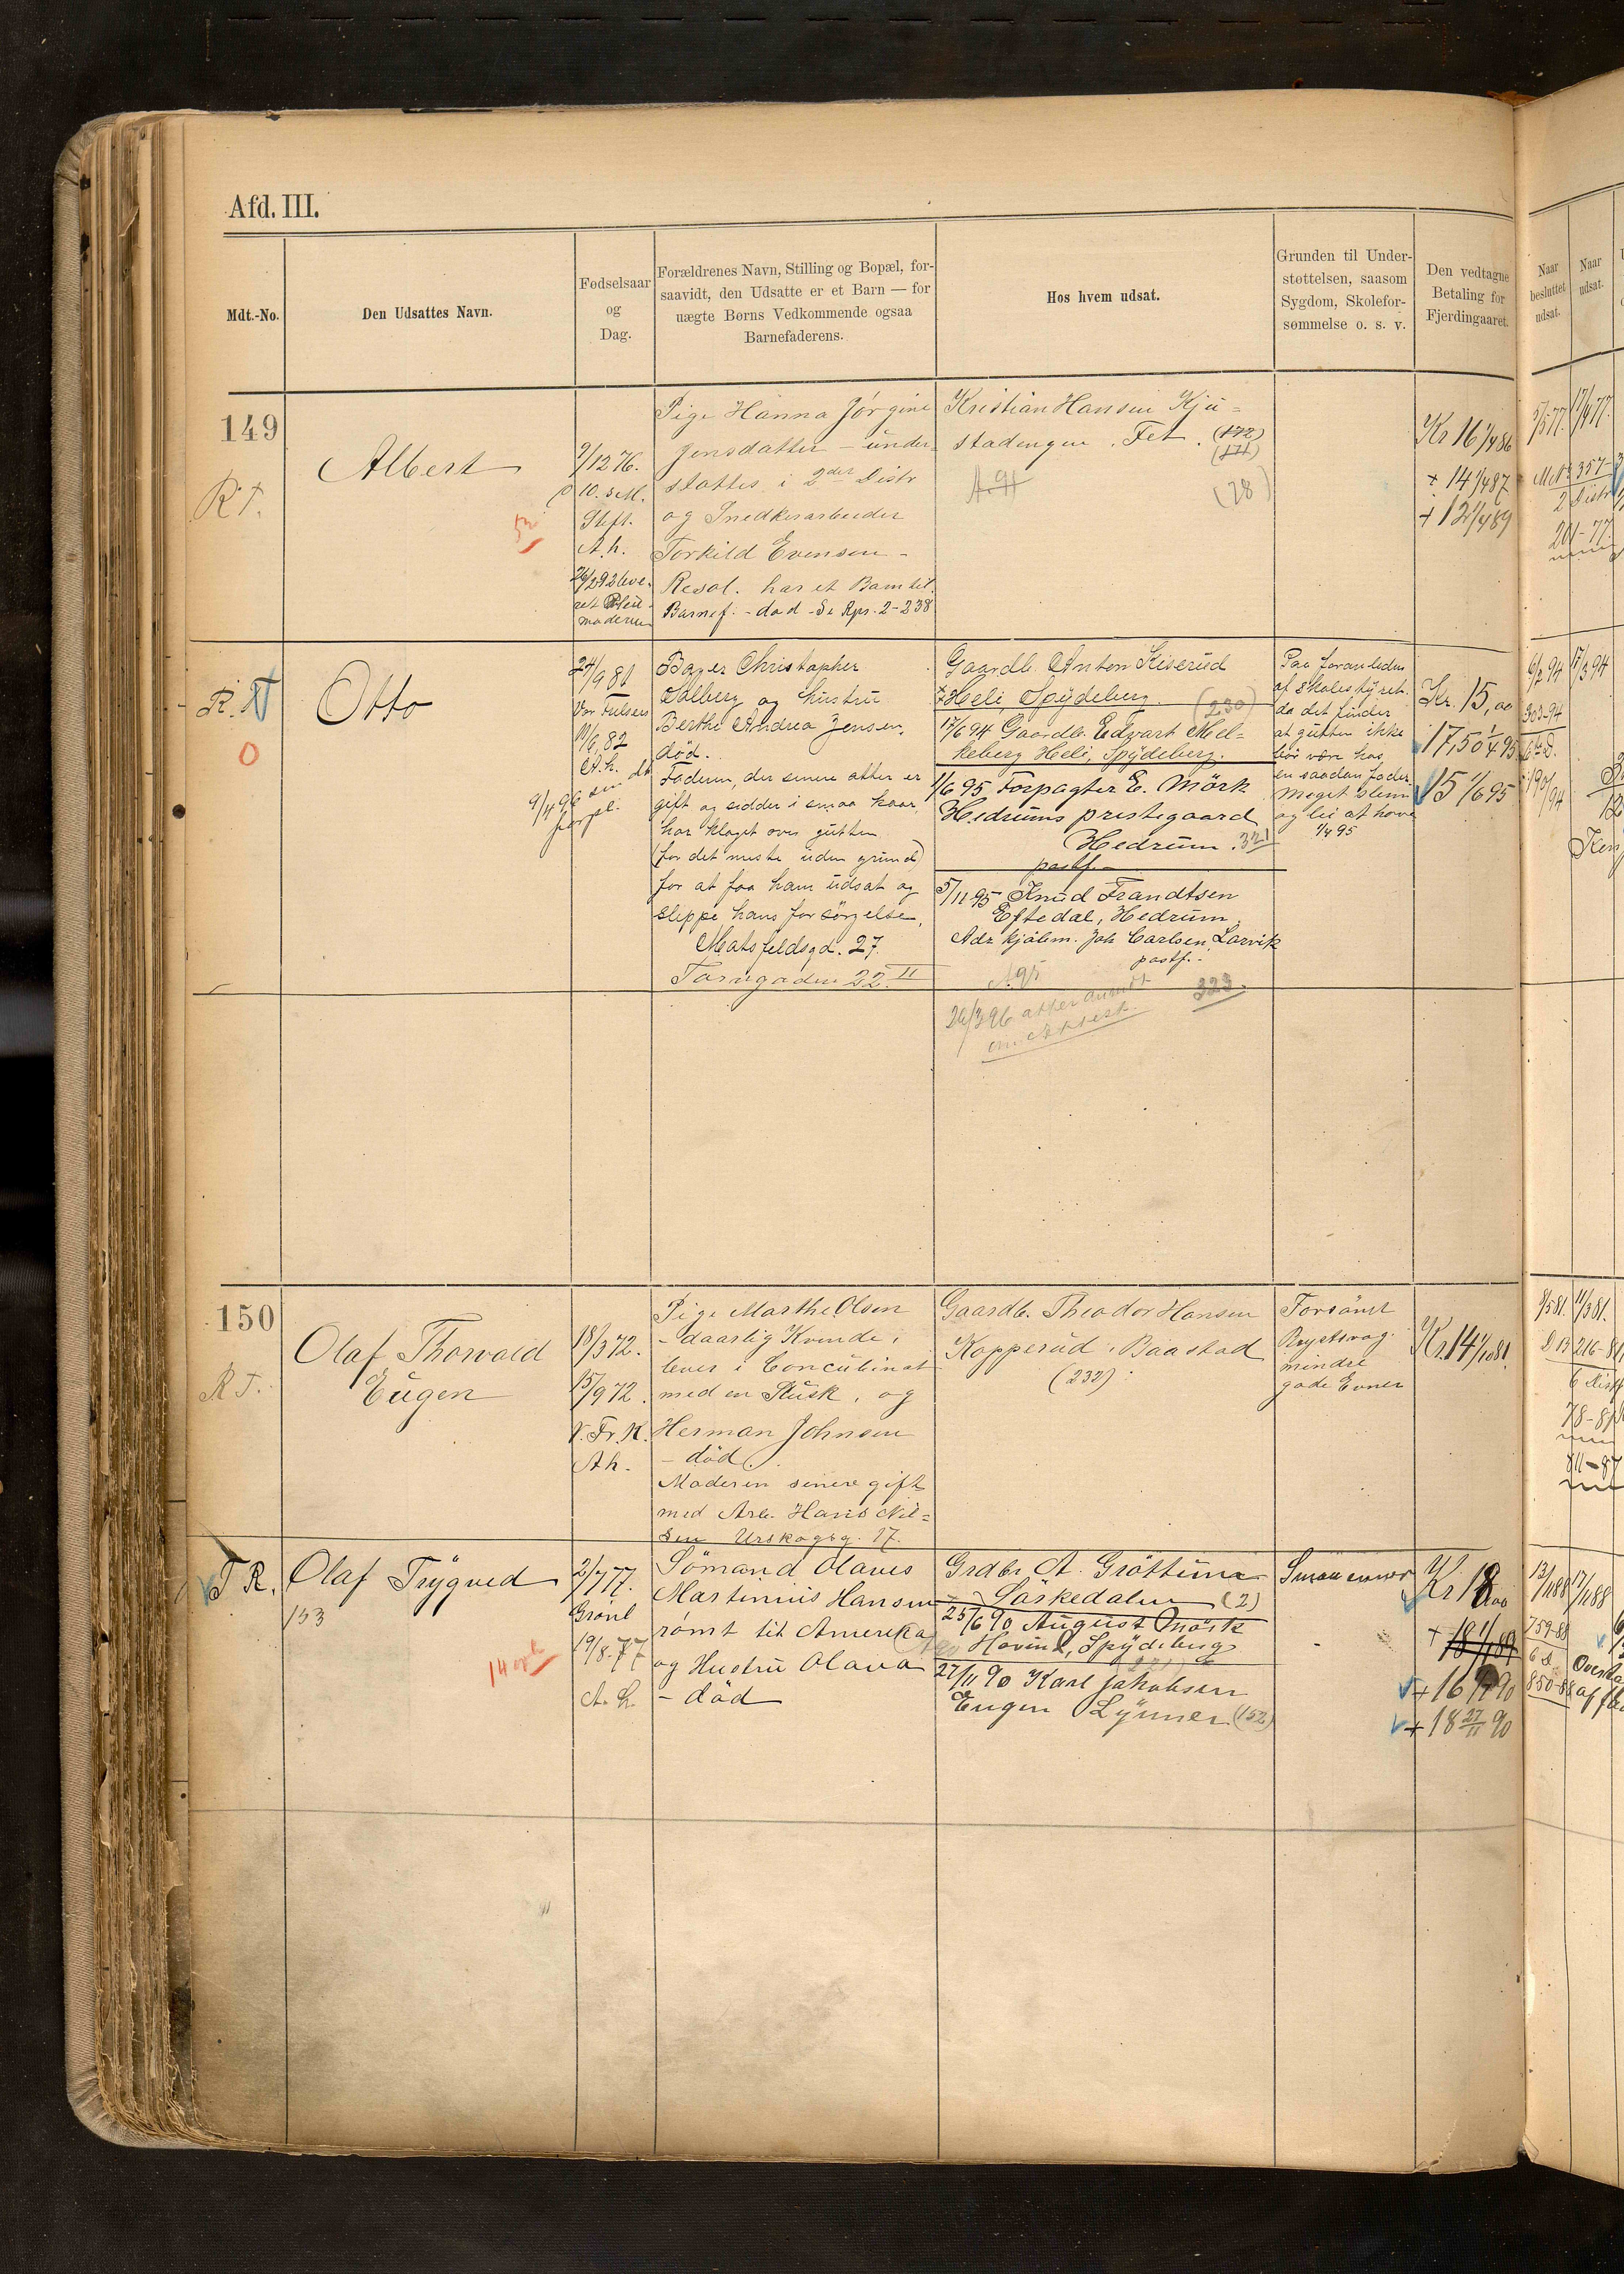 Afd. III.
Mdt.-No.
Den Udsattes Navn.
Fødselsaar
og
Dag.
Forældrenes Navn, Stilling og Bopæl, for-
saavidt, den Udsatte er et Barn — for
uægte Børns Vedkommende ogsaa
Barnefaderens.
Hos hvem udsat.
Grunden til Under-
støttelsen, saasom
Sygdom, Skolefor-
sømmelse o. s. v.
Den vedtagne
Betaling for
Fjerdingaaret.
Naar
besluttet
udsat.
Naar
udsat.
149
R T.
Albert
9/12 76.
Stift.
A. h.
Pige Hanna Jørgine
Jensdatter – under-
støttes i 2det Distr
og Snedkerarbeider
Torkild Evensen –
Resol. har et Barn til.
Barnef. – død – Se Rpr. 2-238
Kristian Hansen Kju=
stadengen. Fet. (172)
(171)
A. 91
(78)
Kr 16 1/4 86
+ 14 1/4 87
+ 12 1/4 89
2 Distr
R. T
0
Otto
24/9 81
Vor Frelsers
11/6 82
A. h.
9/4 96
Bager Christopher
Dalberg og Hustru
Berthe Andrea Jensen,
død.
Faderen, der senere atter er
gift og sidder i smaa kaar,
har klaget over gutten
(for det meste uden grund)
for at faa ham udsat og
slippe hans forsørgelse.
Matsfeldsgd. 27.
Tarngaden 22 II
Gaardb. Anton Kiserud
Heli Spydeberg. (230)
17/6 94 Gaardb. Edvart Mel=
keberg Heli, Spydeberg.
1/6 95 Forpagter E. Mörk
Hedrums prestegaard
Hedrum. 321
postf.
5/11 95 Knud Frandtsen
Eftedal, Hedrum.
Adr kjøbm. Joh Carlsen, Larvik
postf.
A 95
323.
26/3 96 atter anmodt
om attest.
Paa foranledn
af skolestyret.
da det finder
at gutten ikke
bør være hos
en saadan fader
Meget slem
og lei at have
1/4 95
Kr. 15,00
17,50 1/4 95
15 1/6 95
6/2 94
17/3 94
303-94
150
R T.
Olaf Thorvald
Eugen
18/3 72.
15/9 72.
V. Fr. K.
A h.
Pige Marthe Olsen
– daarlig Kvinde,
lever i Concubinat
med en Slusk, og
Herman Johnsen
– død.
Moderen senere gift
med Arb. Hans Niel=
sen Urskogsg. 17.
Gaardb. Theodor Hansen
Kopperud. Baastad
(232)
Forsømt
Brystsvag.
mindre
gode Evner
Kr. 14 1/10 81.
T R.
Olaf Trygved
153
2/7 77.
Grønl
19/8. 77
A. h.
Sömand Olaves
Martinius Hansen
rømt til Amerika
og Hustru Olava
– död
Grdbr. A. Gröttum
Sörkedalen (2)
25/6 90 August Mörk
Hovind, Spydeberg
27/11 90 Karl Jakobsen
Eugen Lynner (152)
Kr 18,00
+ 18 1/1 89
+ 16
+ 18 27/11 90
13/11 88
17/11 88
759-88
850-88